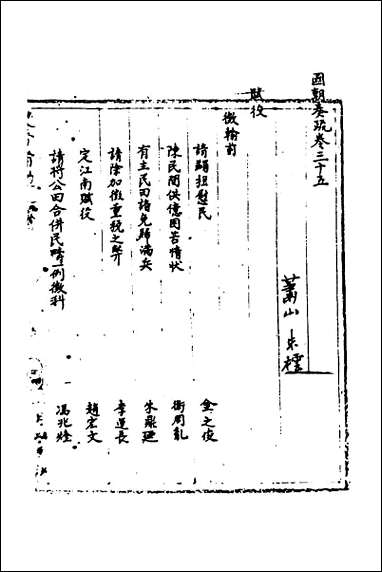 國朝奏疏卷三十五
蕭山 朱橒
賦役
徵輸前
請蠲担慰民 金之俊
陳民間供億困苦情狀 衛周胤
有主民田請免歸滿兵 朱鼎延
請除加徵重稅之弊 李運長
定江南賦役 趙宏文
請將公田合併民畸一例徵科 馮兆煃